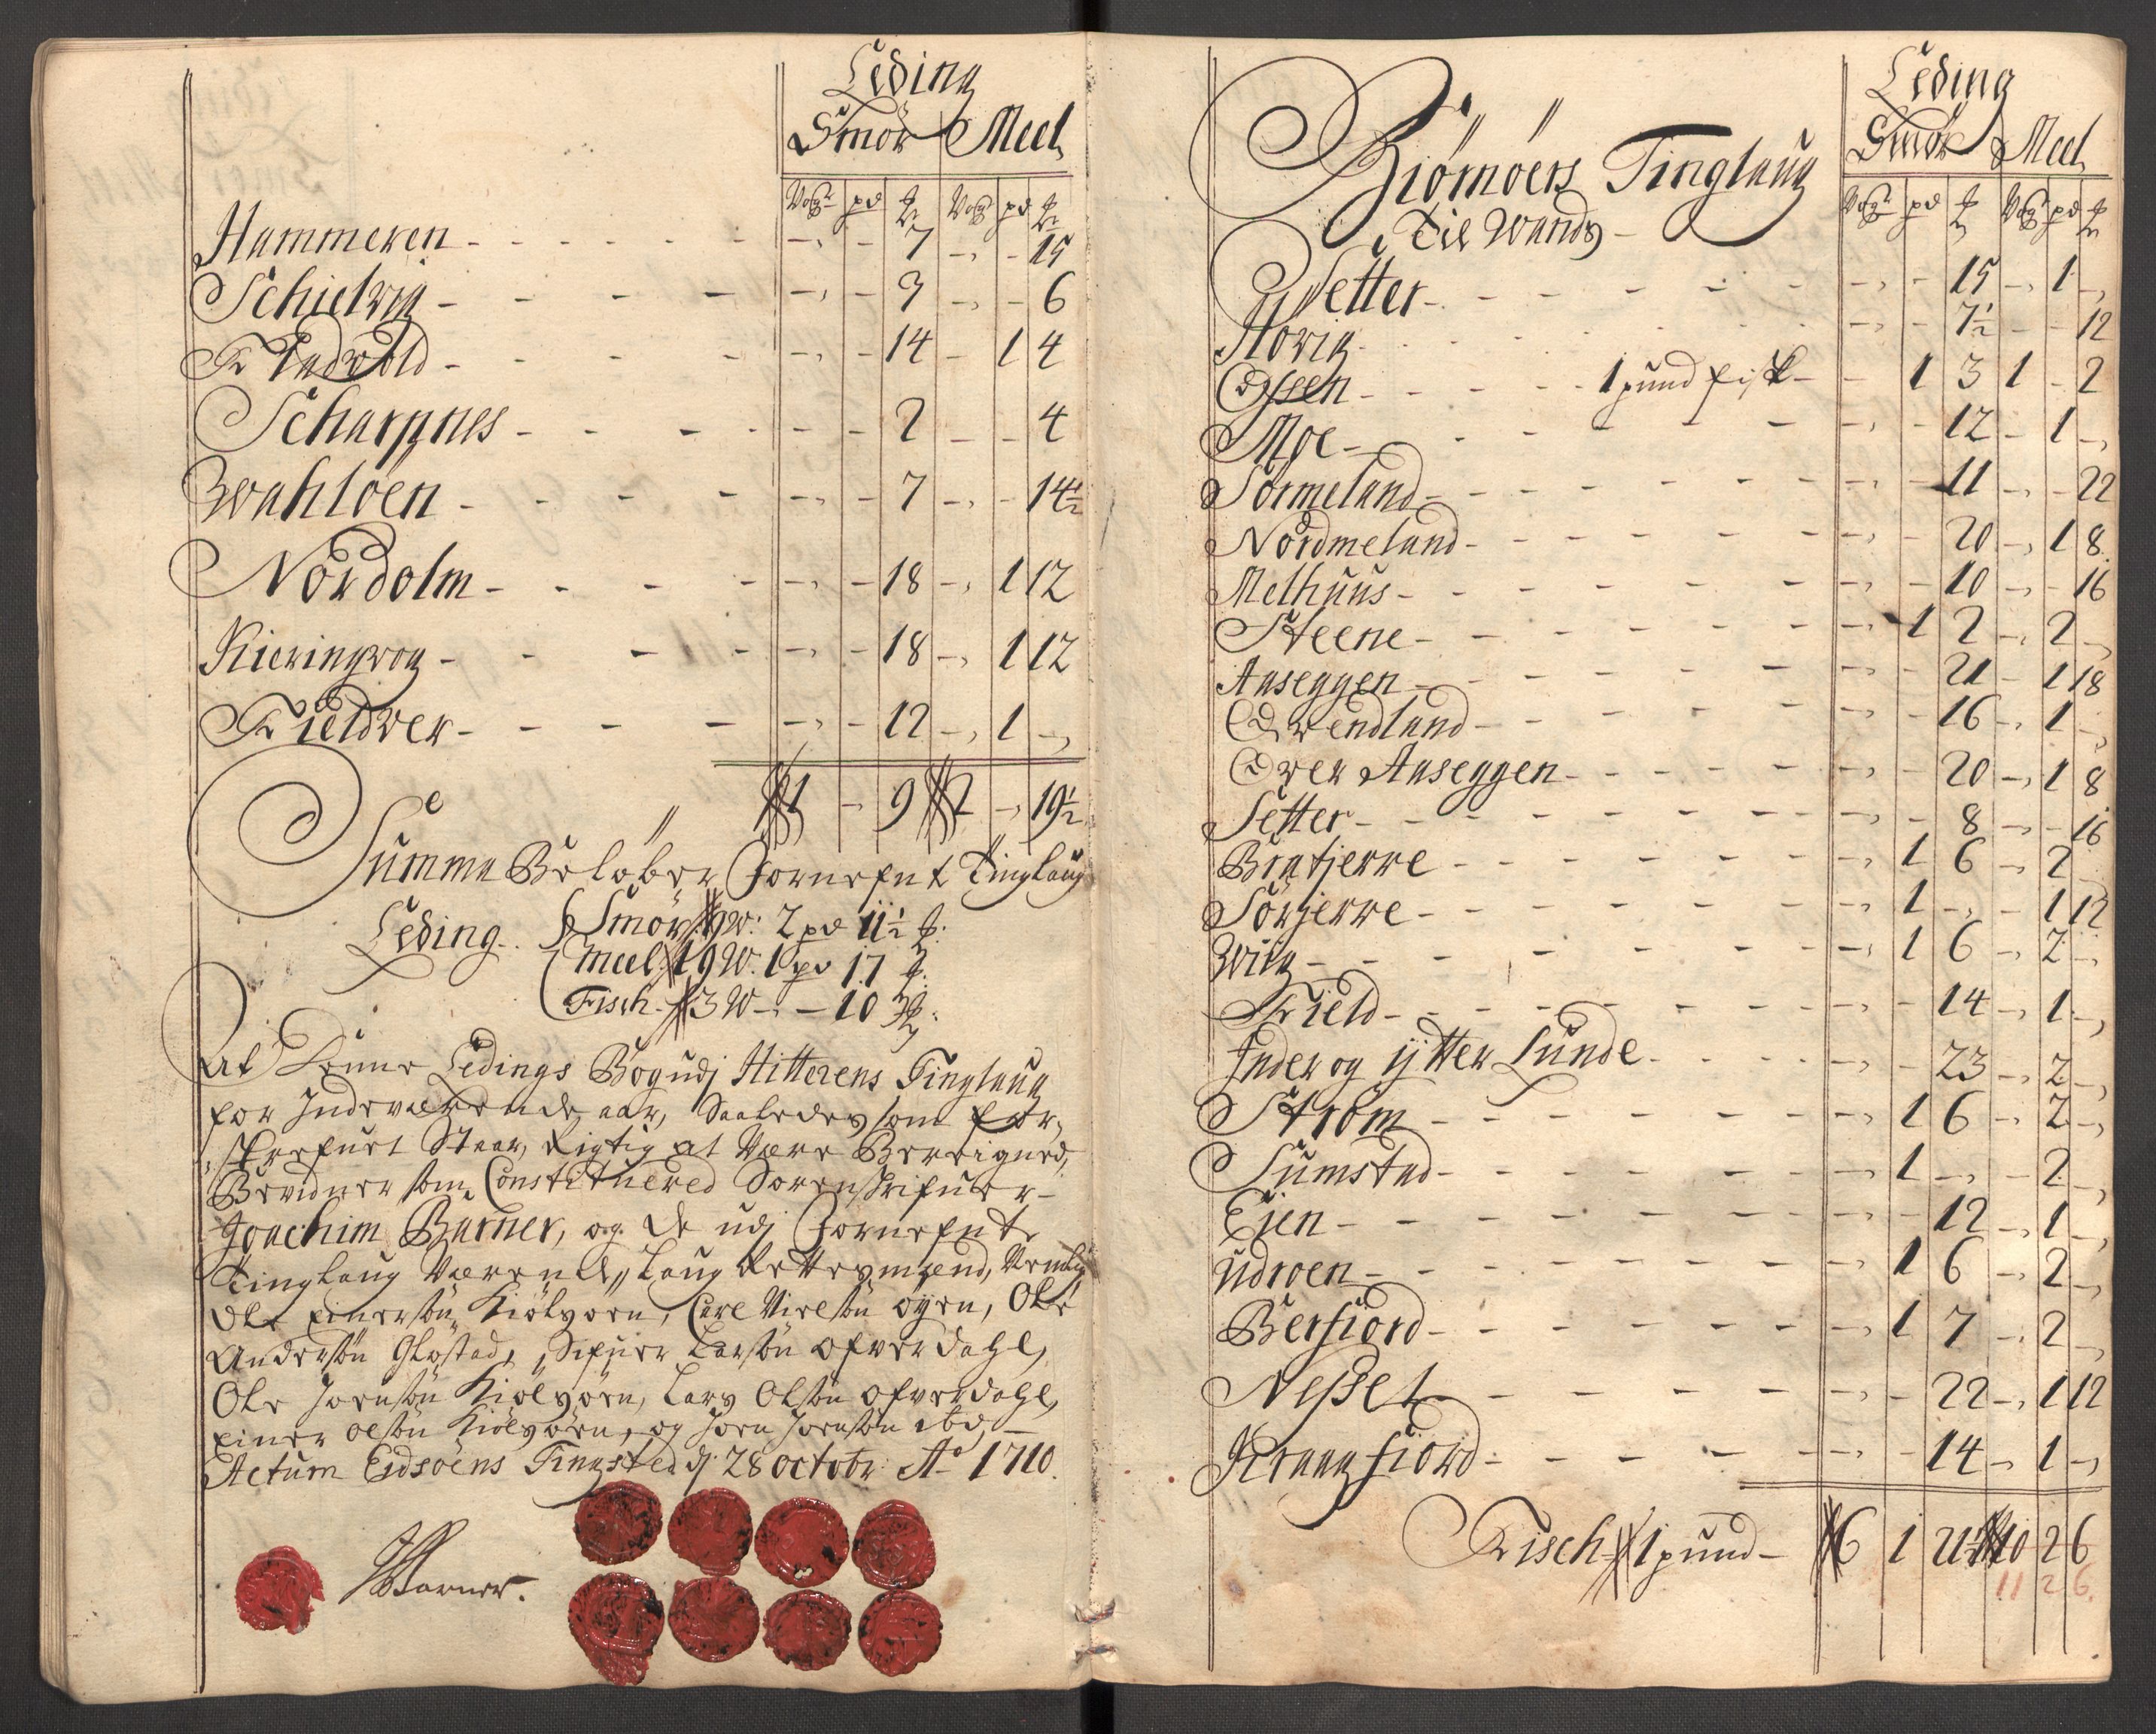 Leding
Smör Meel
Vog pd ℔ Vog pd ℔
Hammeren - - 7 - - 15
Schielwig - - 3 - - 6
Kladvold - - 14 - 1 4
Scharpnes - - 2 - - 4
Wahlöen - - 7 - - 14½
Nordolm - - 18 - 1 12
Kieringwog - - 18 - 1 12
Field​wer - - 12 - 1 -
1 - 9 2 - 19½
Summa Beløber Fornefnt Tinglaug
Leding. Smör 19 W: 2 pd 11½ ℔:
Meel: 19 W. 1 pd 17 ℔:
Fisch 3 W - - 10 ℔:
At denne Ledings Bog udj Hitterens Tinglaug
for Indeværende aar, Saaledes som for,,
,,skrefuet Staar, Rigtig at Være Bereigned,
Bevidner som Constituered Sorenskrifuer
Joachim Barner, og de udj Fornefnte
Tinglaug Værende Laug Rettesmænd, Nemlig
Ole Einersön Kiölsörn, Carl Nielsön öyen, Ole
Andersön Glostad, Sifuer Larsön Ofverdahl,
Ole Jörnsön Kiölsörn, Lars Olsön Ofverdahl,
Einer Olsön Kiölsörn, og Jörn Jörnsön ibd
Actum Eidsöens Tingsted d: 28 octobr: Ao 1710.
Barner.
Leding
Smör Meel
Biörnöers Tinglaug
Vog pd ℔ Vog pd ℔
Til Wands
Setter - - 15 - 1 -
Hövig - - 7½ - - 12
Ossen - 1 pund fisk - 1 3 1 - 2
Moe - - 12 - 1 -
Sörmeland - - 11 - - 22
Nordmeland - - 20 - 1 8
Melhuus - - 10 - - 16
Steene - 1 2 - 2 -
Aaseggen - - 21 - 1 18
Qwendland - - 16 - 1 -
Ower Aaseggen - - 20 - 1 8
Setter - - 8 - - 16
Bratjerre - 1 6 - 2 -
Sörjerre - 1 - - 1 12
Wiig - 1 6 - 2 -
Field - - 14 - 1 -
Inder og ÿtter Lunde - - 23 - 2 -
Ström - 1 6 - 2 -
Sumstad - 1 - - 2 -
Eien - - 12 - 1 -
Udroen - 1 6 - 2 -
Berfiord - 1 7 - 2 -
Nesset - - 22 - 1 12
Kraagfiord - - 14 - 1 -
Fisch 1 pund - 6 1 21½ 10 2 6
11 2 6.